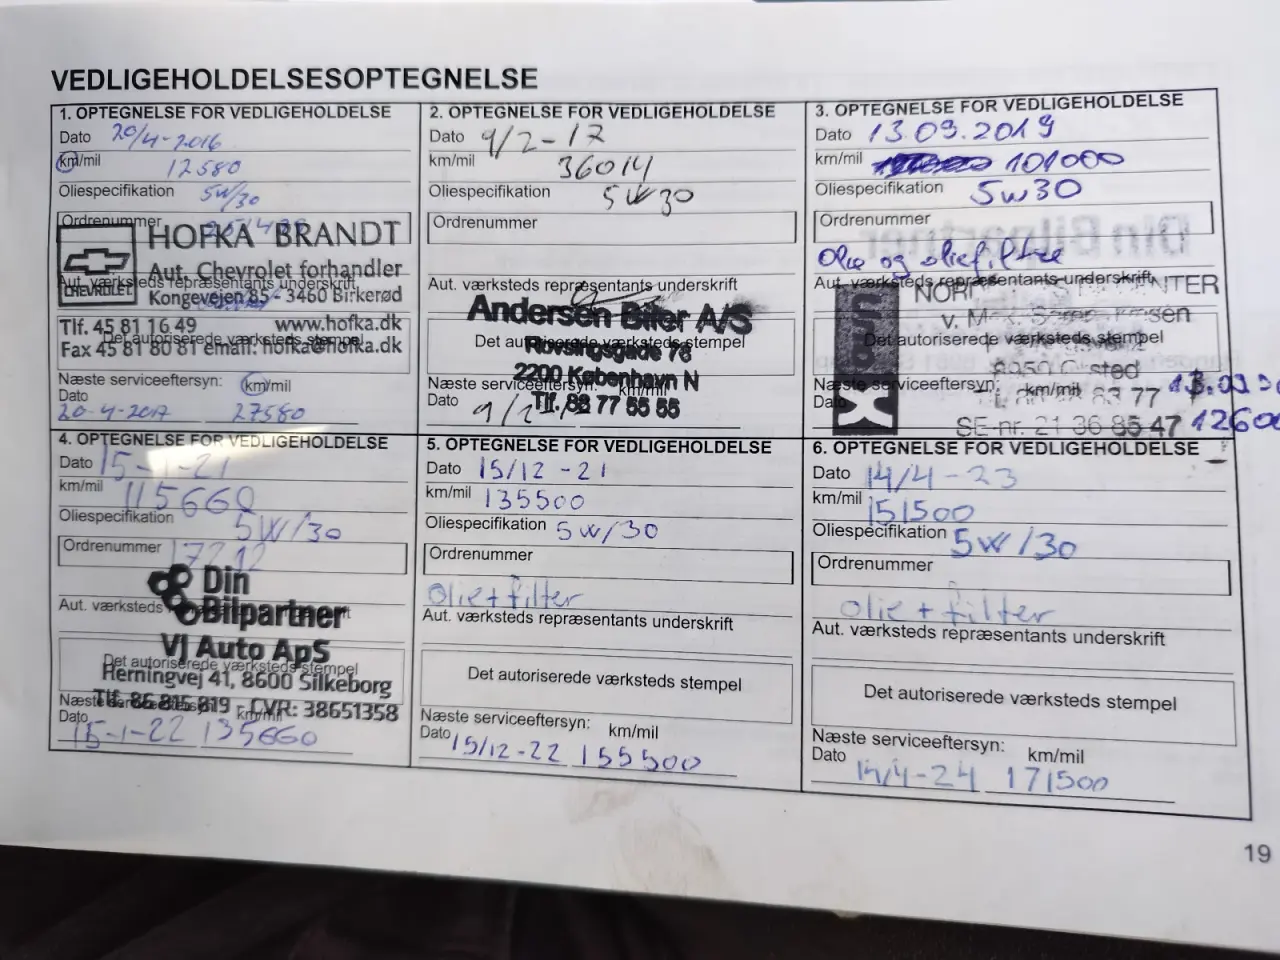 VEDLIGEHOLDELSESOPTEGNELSE
1. OPTEGNELSE FOR VEDLIGEHOLDELSE
Dato 20/4-2016
km/mil 12580
Oliespecifikation 5W/30
Ordrenummer
HOFKA BRANDT
Aut. Chevrolet forhandler
CHEVROLET
Aut. værksteds repræsentants underskrift
Kongevejen 85 - 3460 Birkerød
Tlf. 45 81 16 49 www.hofka.dk
Det autoriserede værksteds stempel
Fax 45 81 80 81 email: hofka@hofka.dk
Næste serviceeftersyn: km/mil
Dato
20-4-2017 27580
2. OPTEGNELSE FOR VEDLIGEHOLDELSE
Dato 9/2-17
km/mil 36014
Oliespecifikation 5W30
Ordrenummer
Aut. værksteds repræsentants underskrift
Andersen Biler A/S
Det autoriserede værksteds stempel
Rovsingsgade 76
2200 København N
Næste serviceeftersyn: km/mil
Dato 9/2
Tlf. 82 77 55 55
3. OPTEGNELSE FOR VEDLIGEHOLDELSE
Dato 13.09.2019
km/mil 101000
Oliespecifikation 5w30
Ordrenummer
Olie og oliefiltre
Aut. værksteds repræsentants underskrift
Det autoriserede værksteds stempel
Næste serviceeftersyn: km/mil
63 77
Dato
SE-nr. 21 36 85 47
4. OPTEGNELSE FOR VEDLIGEHOLDELSE
Dato 15-1-21
km/mil 115660
Oliespecifikation 5W/30
Ordrenummer 17212
Din
Bilpartner
Aut. værksteds
VJ Auto ApS
Det autoriserede værksteds stempel
Herningvej 41, 8600 Silkeborg
Tlf. 86 815 819 - CVR: 38651358
Næste km/mil
Dato
15-1-22 135660
5. OPTEGNELSE FOR VEDLIGEHOLDELSE
Dato 15/12-21
km/mil 135500
Oliespecifikation 5W/30
Ordrenummer
olie+filter
Aut. værksteds repræsentants underskrift
Det autoriserede værksteds stempel
Næste serviceeftersyn: km/mil
Dato 15/12-22 155500
6. OPTEGNELSE FOR VEDLIGEHOLDELSE
Dato 14/4-23
km/mil 151500
Oliespecifikation 5W/30
Ordrenummer
olie+filter
Aut. værksteds repræsentants underskrift
Det autoriserede værksteds stempel
Næste serviceeftersyn: km/mil
Dato 14/4-24 171500
19